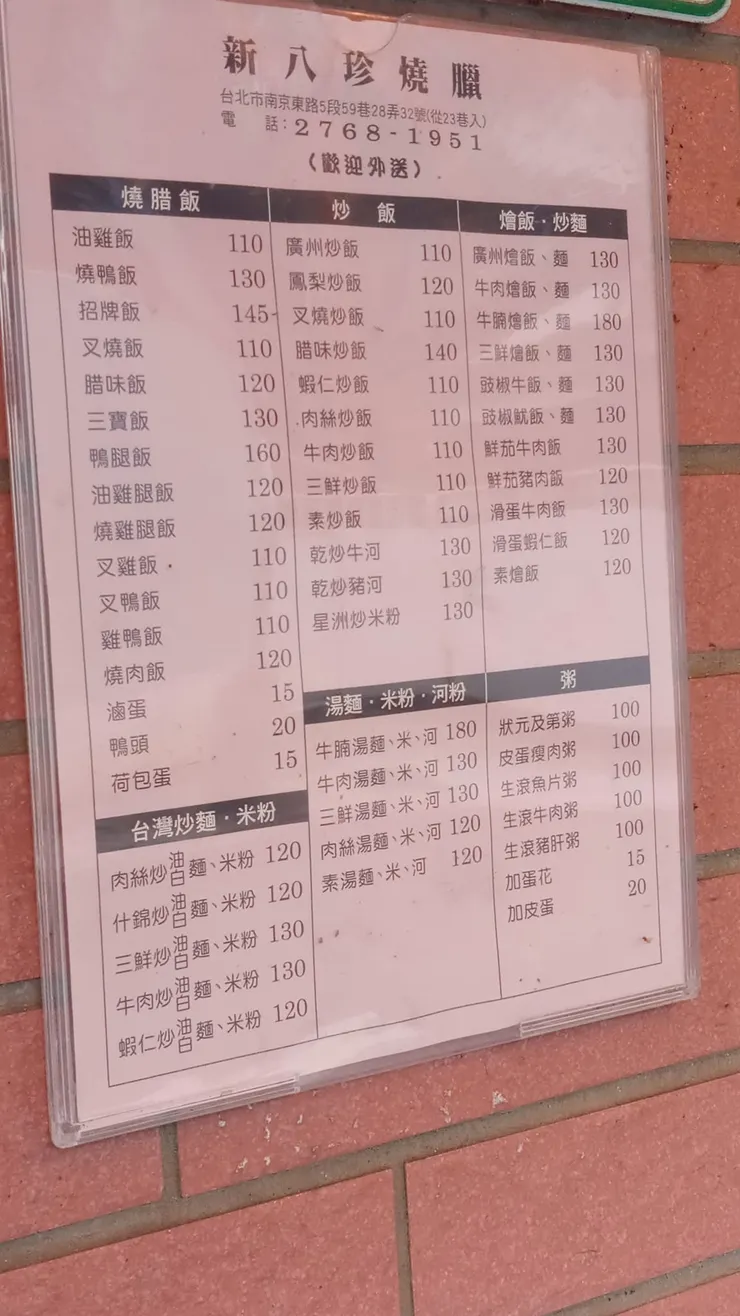 新八珍燒臘
台北市南京東路5段59巷28弄32號(從23巷入)
電 話：2768-1951
(歡迎外送)
燒腊飯
油雞飯 110
燒鴨飯 130
招牌飯 145
叉燒飯 110
腊味飯 120
三寶飯 130
鴨腿飯 160
油雞腿飯 120
燒雞腿飯 120
叉雞飯 110
叉鴨飯 110
雞鴨飯 110
燒肉飯 120
滷蛋 15
鴨頭 20
荷包蛋 15
台灣炒麵·米粉
肉絲炒油白麵、米粉 120
什錦炒油白麵、米粉 120
三鮮炒油白麵、米粉 130
牛肉炒油白麵、米粉 130
蝦仁炒油白麵、米粉 120
炒 飯
廣州炒飯 110
鳳梨炒飯 120
叉燒炒飯 110
腊味炒飯 140
蝦仁炒飯 110
肉絲炒飯 110
牛肉炒飯 110
三鮮炒飯 110
素炒飯 110
乾炒牛河 130
乾炒豬河 130
星洲炒米粉 130
湯麵·米粉·河粉
牛腩湯麵、米、河 180
牛肉湯麵、米、河 130
三鮮湯麵、米、河 130
肉絲湯麵、米、河 120
素湯麵、米、河 120
燴飯·炒麵
廣州燴飯、麵 130
牛肉燴飯、麵 130
牛腩燴飯、麵 180
三鮮燴飯、麵 130
豉椒牛飯、麵 130
豉椒魷飯、麵 130
鮮茄牛肉飯 130
鮮茄豬肉飯 120
滑蛋牛肉飯 130
滑蛋蝦仁飯 120
素燴飯 120
粥
狀元及第粥 100
皮蛋瘦肉粥 100
生滾魚片粥 100
生滾牛肉粥 100
生滾豬肝粥 100
加蛋花 15
加皮蛋 20